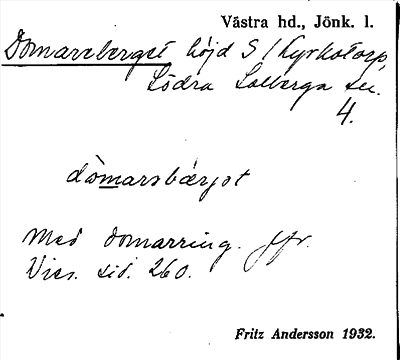 Västra hd., Jönk. l.
Domareberget höjd S / Kyrkotorp,
Södra Solberga sn.
4.
dòmarsbärjet
Med domarring. Jfr.
Vies. sid. 260.
Fritz Andersson 1932.